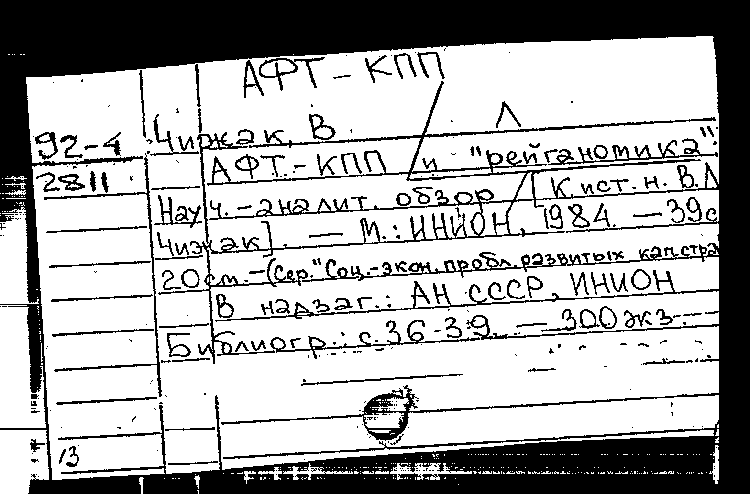 АФТ - КПП
92-4 Чижак, В. Л
2811 АФТ.-КПП и "рейганомика":
Науч.-аналит. обзор / [К. ист. н. В.Л
Чижак]. — М.: ИНИОН, 1984. — 39с
20 см. - (Сер. "Соц.-экон. пробл. развитых кап. стра
В надзаг.: АН СССР, ИНИОН
Библиогр.: с. 36-39. — 300 экз.
13